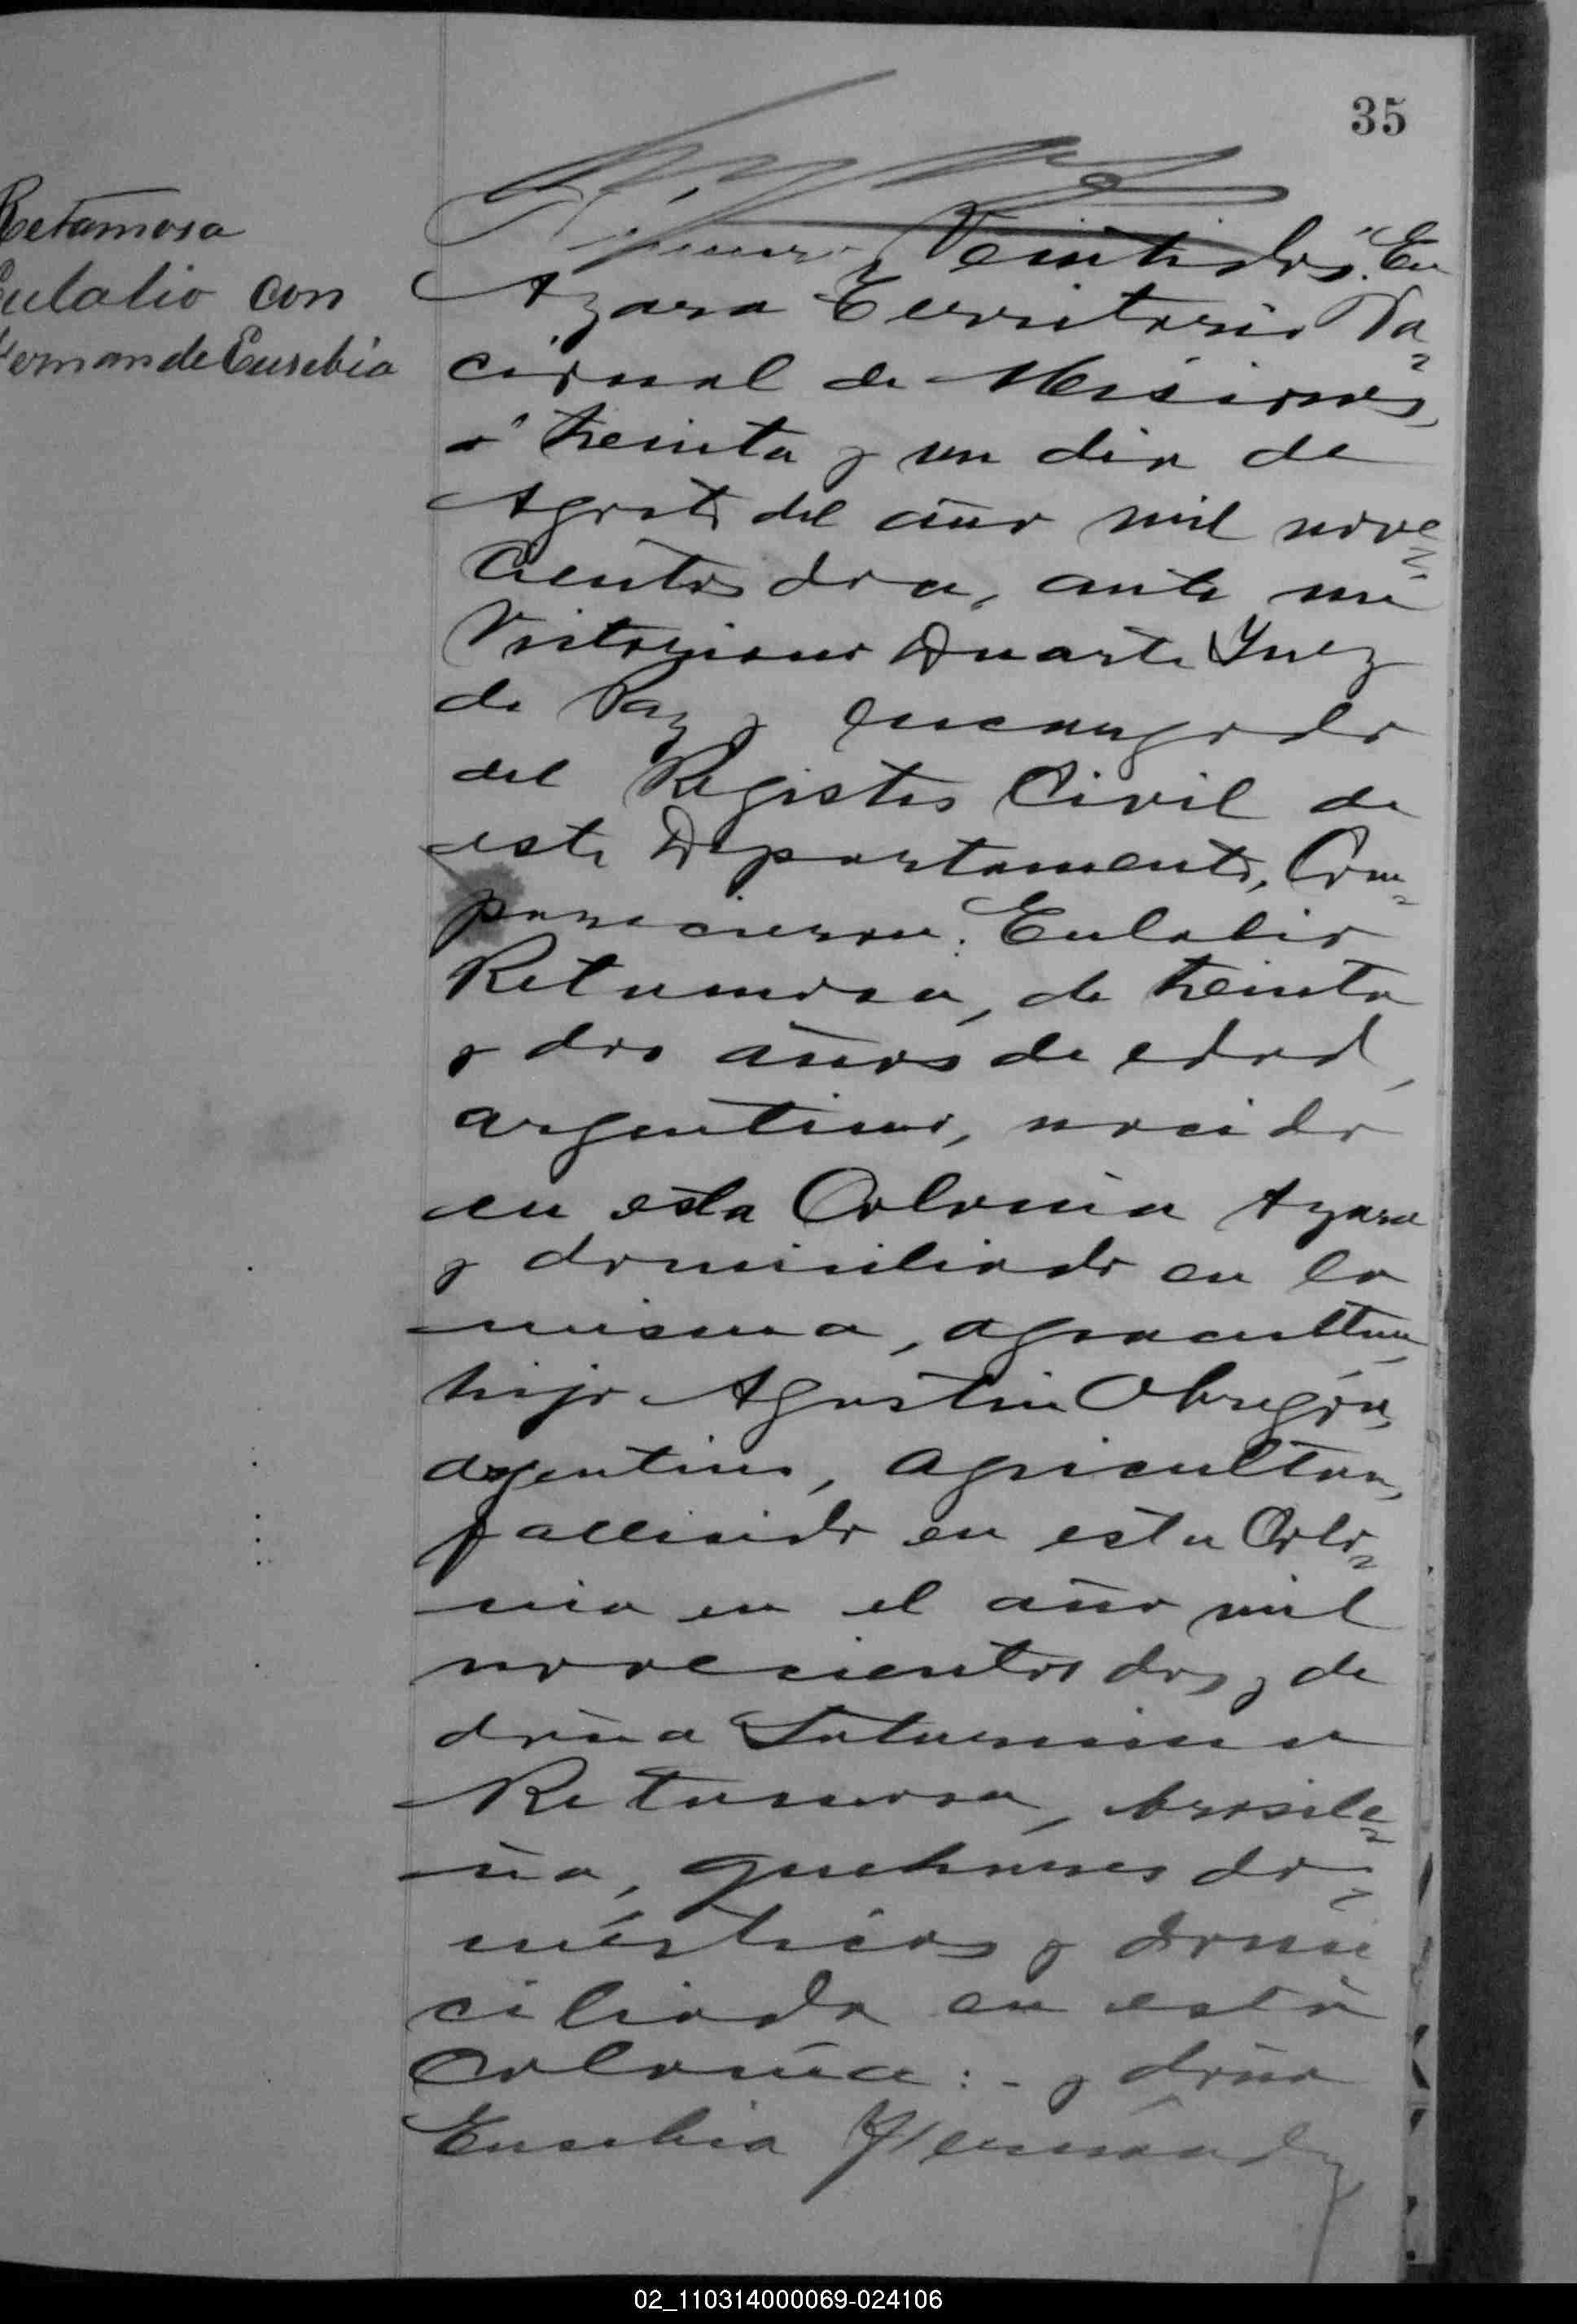 35
Retamosa
Eulalio con
Hernande Eusebia
Número Veintidos. En
Azara Territorio Na=
cional de Misiones,
a treinta y un dia de
Agosto del año mil nove=
cientos doce, ante mi
Victoriano Duarte Juez
de Paz y encargado
del Registro Civil de
este Departamento, Com=
parecieron: Eulalio
Retamosa, de treinta
y dos años de edad,
argentino, nacido
en esta Colonia Azara
y domiciliado en la
misma, agricultor,
hijo Agustin Obregón,
argentino, agricultor,
fallecido en esta Colo=
nia en el año mil
novecientos dos y de
doña Saturnina
Retamosa, brasile=
ña, quehaceres do=
mésticos y domi
ciliada en esta
Colonia: - y doña
Eusebia Hernandez
02_110314000069-024106